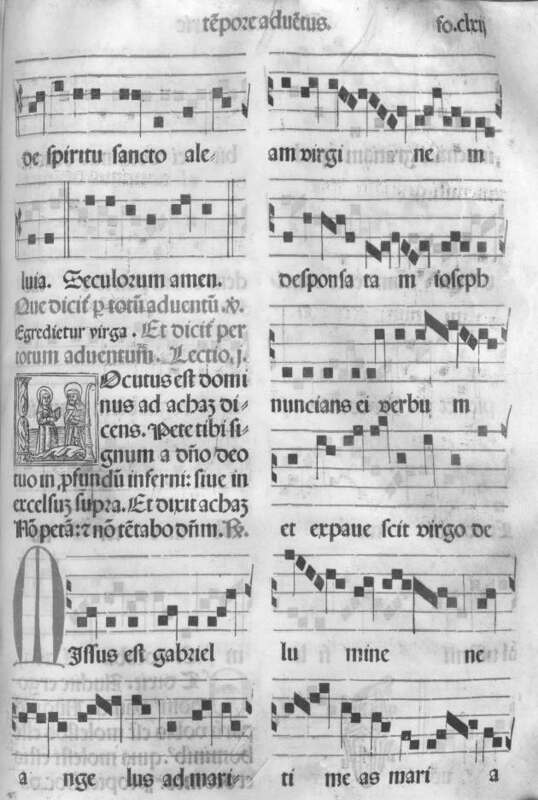 tẽpore aduẽtus.
fo.clxij
de spiritu sancto ale-
luia. Seculorum amen.
Que dicit' ꝑ totũ aduentũ. ℣.
Egredietur virga. Et dicit' per
totum aduentum. Lectio. j.
LOcutus est domi
nus ad achaz di-
cens. Pete tibi si-
gnum a dño deo
tuo in ꝓfundũ inferni: siue in
excelsuz supra. Et dixit achaz
Nõ petã: ⁊ nõ tẽtabo dñm. ℟.
MIssus est gabriel
a nge lus ad mari-
am virgi ne m
desponsa ta m ioseph
nuncians ei verbu m
et expaue scit virgo de
lu mine ne
ti me as mari a